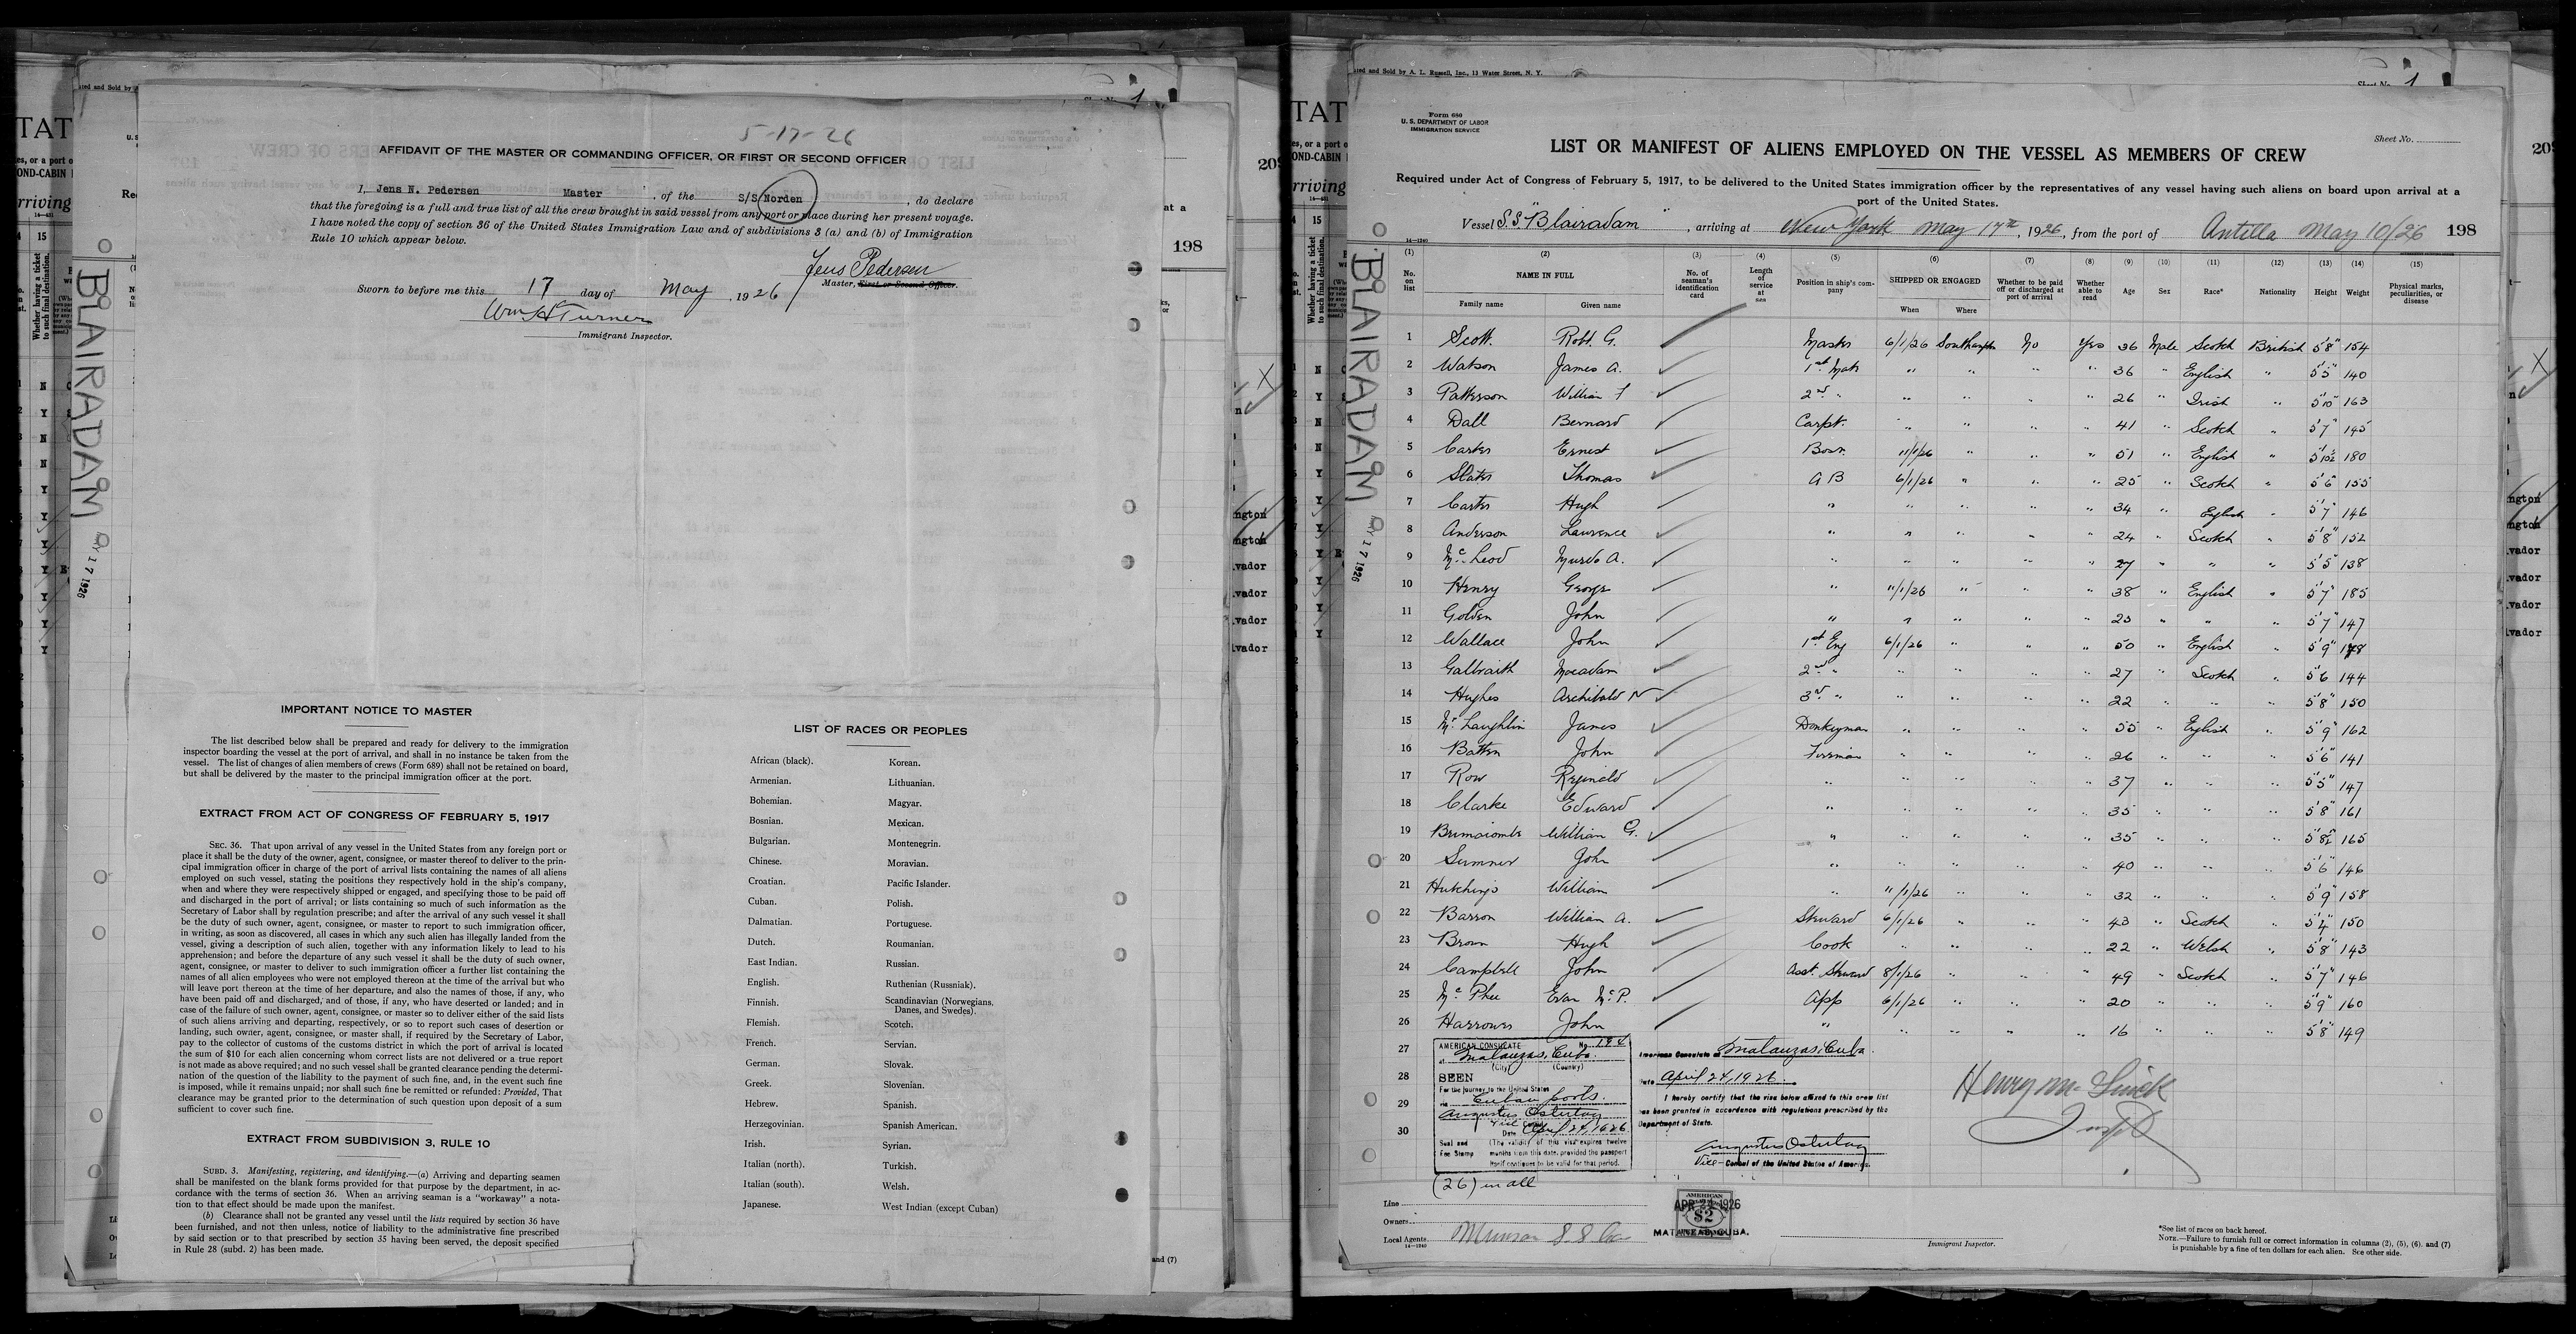 5-17-26
AFFIDAVIT OF THE MASTER OR COMMANDING OFFICER, OR FIRST OR SECOND OFFICER
I, Jens N. Pedersen Master, of the S/S Norden, do declare
that the foregoing is a full and true list of all the crew brought in said vessel from any port or place during her present voyage.
I have noted the copy of section 36 of the United States Immigration Law and of subdivisions 3 (a) and (b) of Immigration
Rule 10 which appear below.
Jens Pedersen
Master, First or Second Officer.
Sworn to before me this 17 day of May, 1926
Wm H Turner
Immigrant Inspector.
BLAIRADAM MAY 17 1926
IMPORTANT NOTICE TO MASTER
The list described below shall be prepared and ready for delivery to the immigration
inspector boarding the vessel at the port of arrival, and shall in no instance be taken from the
vessel. The list of changes of alien members of crews (Form 689) shall not be retained on board,
but shall be delivered by the master to the principal immigration officer at the port.
EXTRACT FROM ACT OF CONGRESS OF FEBRUARY 5, 1917
SEC. 36. That upon arrival of any vessel in the United States from any foreign port or
place it shall be the duty of the owner, agent, consignee, or master thereof to deliver to the prin-
cipal immigration officer in charge of the port of arrival lists containing the names of all aliens
employed on such vessel, stating the positions they respectively hold in the ship's company,
when and where they were respectively shipped or engaged, and specifying those to be paid off
and discharged in the port of arrival; or lists containing so much of such information as the
Secretary of Labor shall by regulation prescribe; and after the arrival of any such vessel it shall
be the duty of such owner, agent, consignee, or master to report to such immigration officer,
in writing, as soon as discovered, all cases in which any such alien has illegally landed from the
vessel, giving a description of such alien, together with any information likely to lead to his
apprehension; and before the departure of any such vessel it shall be the duty of such owner,
agent, consignee, or master to deliver to such immigration officer a further list containing the
names of all alien employees who were not employed thereon at the time of the arrival but who
will leave port thereon at the time of her departure, and also the names of those, if any, who
have been paid off and discharged, and of those, if any, who have deserted or landed; and in
case of the failure of such owner, agent, consignee, or master so to deliver either of the said lists
of such aliens arriving and departing, respectively, or so to report such cases of desertion or
landing, such owner, agent, consignee, or master shall, if required by the Secretary of Labor,
pay to the collector of customs of the customs district in which the port of arrival is located
the sum of $10 for each alien concerning whom correct lists are not delivered or a true report
is not made as above required; and no such vessel shall be granted clearance pending the determi-
nation of the question of the liability to the payment of such fine, and, in the event such fine
is imposed, while it remains unpaid; nor shall such fine be remitted or refunded: Provided, That
clearance may be granted prior to the determination of such question upon deposit of a sum
sufficient to cover such fine.
EXTRACT FROM SUBDIVISION 3, RULE 10
SUBD. 3. Manifesting, registering, and identifying.—(a) Arriving and departing seamen
shall be manifested on the blank forms provided for that purpose by the department, in ac-
cordance with the terms of section 36. When an arriving seaman is a "workaway" a nota-
tion to that effect should be made upon the manifest.
(b) Clearance shall not be granted any vessel until the lists required by section 36 have
been furnished, and not then unless, notice of liability to the administrative fine prescribed
by said section or to that prescribed by section 35 having been served, the deposit specified
in Rule 28 (subd. 2) has been made.
LIST OF RACES OR PEOPLES
African (black). Korean.
Armenian. Lithuanian.
Bohemian. Magyar.
Bosnian. Mexican.
Bulgarian. Montenegrin.
Chinese. Moravian.
Croatian. Pacific Islander.
Cuban. Polish.
Dalmatian. Portuguese.
Dutch. Roumanian.
East Indian. Russian.
English. Ruthenian (Russniak).
Finnish. Scandinavian (Norwegians, Danes, and Swedes).
Flemish. Scotch.
French. Servian.
German. Slovak.
Greek. Slovenian.
Hebrew. Spanish.
Herzegovinian. Spanish American.
Irish. Syrian.
Italian (north). Turkish.
Italian (south). Welsh.
Japanese. West Indian (except Cuban)
and Sold by A. L. Russell, Inc., 13 Water Street, N. Y.
Form 680
U. S. DEPARTMENT OF LABOR
IMMIGRATION SERVICE
Sheet No.
LIST OR MANIFEST OF ALIENS EMPLOYED ON THE VESSEL AS MEMBERS OF CREW
Required under Act of Congress of February 5, 1917, to be delivered to the United States immigration officer by the representatives of any vessel having such aliens on board upon arrival at a
port of the United States.
Vessel S.S. "Blairadam", arriving at New York May 17th, 1926, from the port of Antilla May 10/26 198
14-1240
BLAIRADAM MAY 17 1926
(1) (2) (3) (4) (5) (6) (7) (8) (9) (10) (11) (12) (13) (14) (15)
No. on list NAME IN FULL Family name Given name No. of seaman's identification card Length of service at sea Position in ship's company SHIPPED OR ENGAGED When Where Whether to be paid off or discharged at port of arrival Whether able to read Age Sex Race* Nationality Height Weight Physical marks, peculiarities, or disease
1 Scott. Robt. G. Master 6/1/26 Southampton No Yes 36 Male Scotch British 5'8" 154
2 Watson James A. 1st Mate " " " " 36 " English " 5'5" 140
3 Patterson William F 2nd " " " " " 26 " Irish " 5'10" 163
4 Dall Bernard Carpt. " " " " 41 " Scotch " 5'7" 145
5 Carter Ernest Bosn. 11/1/26 " " " 51 " English " 5'10½ 180
6 Slater Thomas A B 6/1/26 " " " 25 " Scotch " 5'6" 155
7 Carter Hugh " " " " " 34 " English " 5'7" 146
8 Anderson Laurence " " " " " 24 " Scotch " 5'8" 152
9 McLeod Murdo A. " " " " " 27 " " " 5'5" 138
10 Henry George " 11/1/26 " " " 38 " English " 5'7" 185
11 Golden John " " " " " 23 " " " 5'7" 147
12 Wallace John 1st Eng 6/1/26 " " " 50 " English " 5'9"
13 Galbraith Macadam 2nd " " " " " 27 " Scotch " 5'6 144
14 Hughes Archibald N 3rd " " " " " 22 " " " 5'8" 150
15 McLaughlin James Donkeyman " " " " 55 " English " 5'9" 162
16 Batten John Fireman " " " " 26 " " " 5'6" 141
17 Row Reginald " " " " " 37 " " " 5'5" 147
18 Clarke Edward " " " " " 35 " " " 5'8" 161
19 Brimacombe William G. " " " " " 35 " " " 5'8½" 165
20 Sumner John " " " " " 40 " " " 5'6" 146
21 Hutchings William " 11/1/26 " " " 32 " " " 5'9" 158
22 Barron William A. Steward 6/1/26 " " " 43 " Scotch " 5'4" 150
23 Brown Hugh Cook " " " " 22 " Welsh " 5'8" 143
24 Campbell John Asst. Steward 8/1/26 " " " 49 " Scotch " 5'7" 146
25 McPhee Evan McP. App 6/1/26 " " " 20 " " " 5'9" 160
26 Harrower John " " " " " 16 " " " 5'8" 149
27
28
29
30
AMERICAN CONSULATE No. 194
at Matanzas, Cuba.
(City) (Country)
SEEN
For the journey to the United States
via Cuban ports.
Augustus Ostertag
Vice Consul
Date April 24, 1926
Seal and Fee Stamp
(The validity of this visa expires twelve
months from this date, provided the passport
itself continues to be valid for that period.
American Consulate at Matanzas, Cuba.
Date April 24, 1926.
I hereby certify that the visa below affixed to this crew list
has been granted in accordance with regulations prescribed by the
Department of State.
Augustus Ostertag
Vice-Consul of the United States of America.
Henry
(26) in all
Line
Owners
Local Agents Munson S.S. Line
14-1240
AMERICAN
APR 24 1926
$2
MATANZAS, CUBA.
Immigrant Inspector.
*See list of races on back hereof.
NOTE.—Failure to furnish full or correct information in columns (2), (5), (6), and (7)
is punishable by a fine of ten dollars for each alien. See other side.